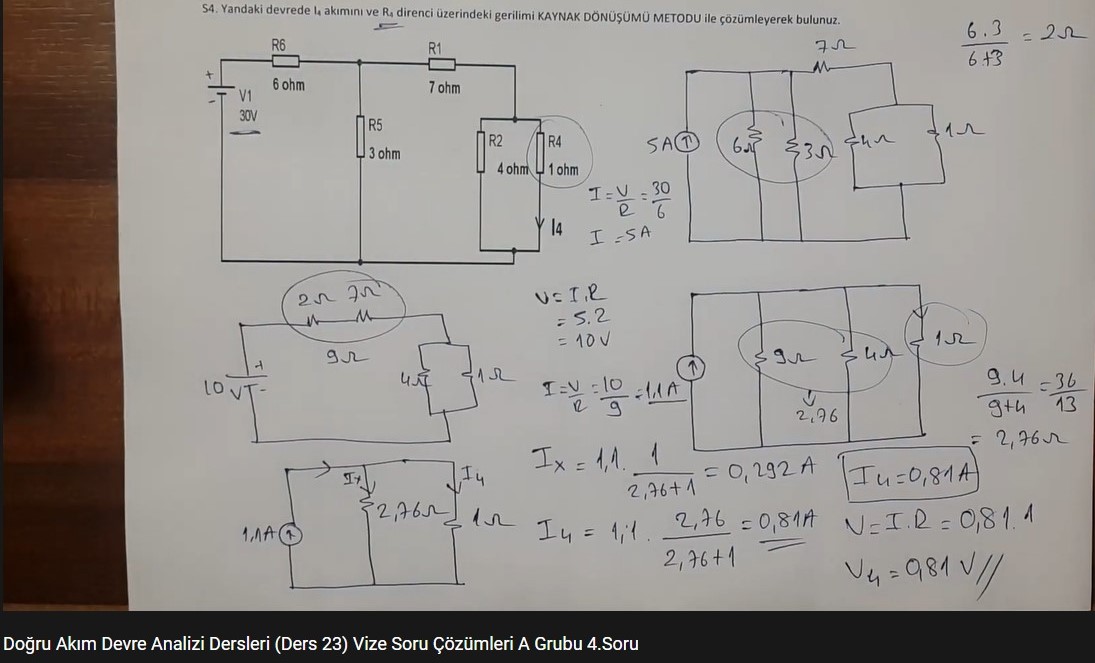 S4. Yandaki devrede I₄ akımını ve R₄ direnci üzerindeki gerilimi KAYNAK DÖNÜŞÜMÜ METODU ile çözümleyerek bulunuz.
R6
6 ohm
R1
7 ohm
+
-
V1
30V
R5
3 ohm
R2
4 ohm
R4
1 ohm
I4
7Ω
6.3 / 6+3 = 2Ω
5A
6Ω
3Ω
4Ω
1Ω
I = V/R = 30/6
I = 5A
2Ω 7Ω
9Ω
10V
+
-
4Ω
1Ω
V = I.R
= 5.2
= 10V
I = V/R = 10/9 = 1,1A
9Ω
4Ω
1Ω
2,76
9.4 / 9+4 = 36/13
= 2,76Ω
1,1A
Ix
2,76Ω
I4
1Ω
Ix = 1,1. 1 / 2,76+1 = 0,292A
I4 = 1,1. 2,76 / 2,76+1 = 0,81A
I4 = 0,81A
V = I.R = 0,81.1
V4 = 0,81V//
Doğru Akım Devre Analizi Dersleri (Ders 23) Vize Soru Çözümleri A Grubu 4.Soru